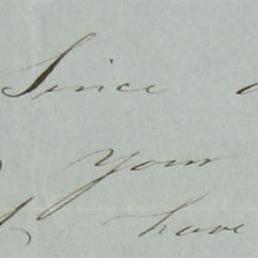 Since
your
have